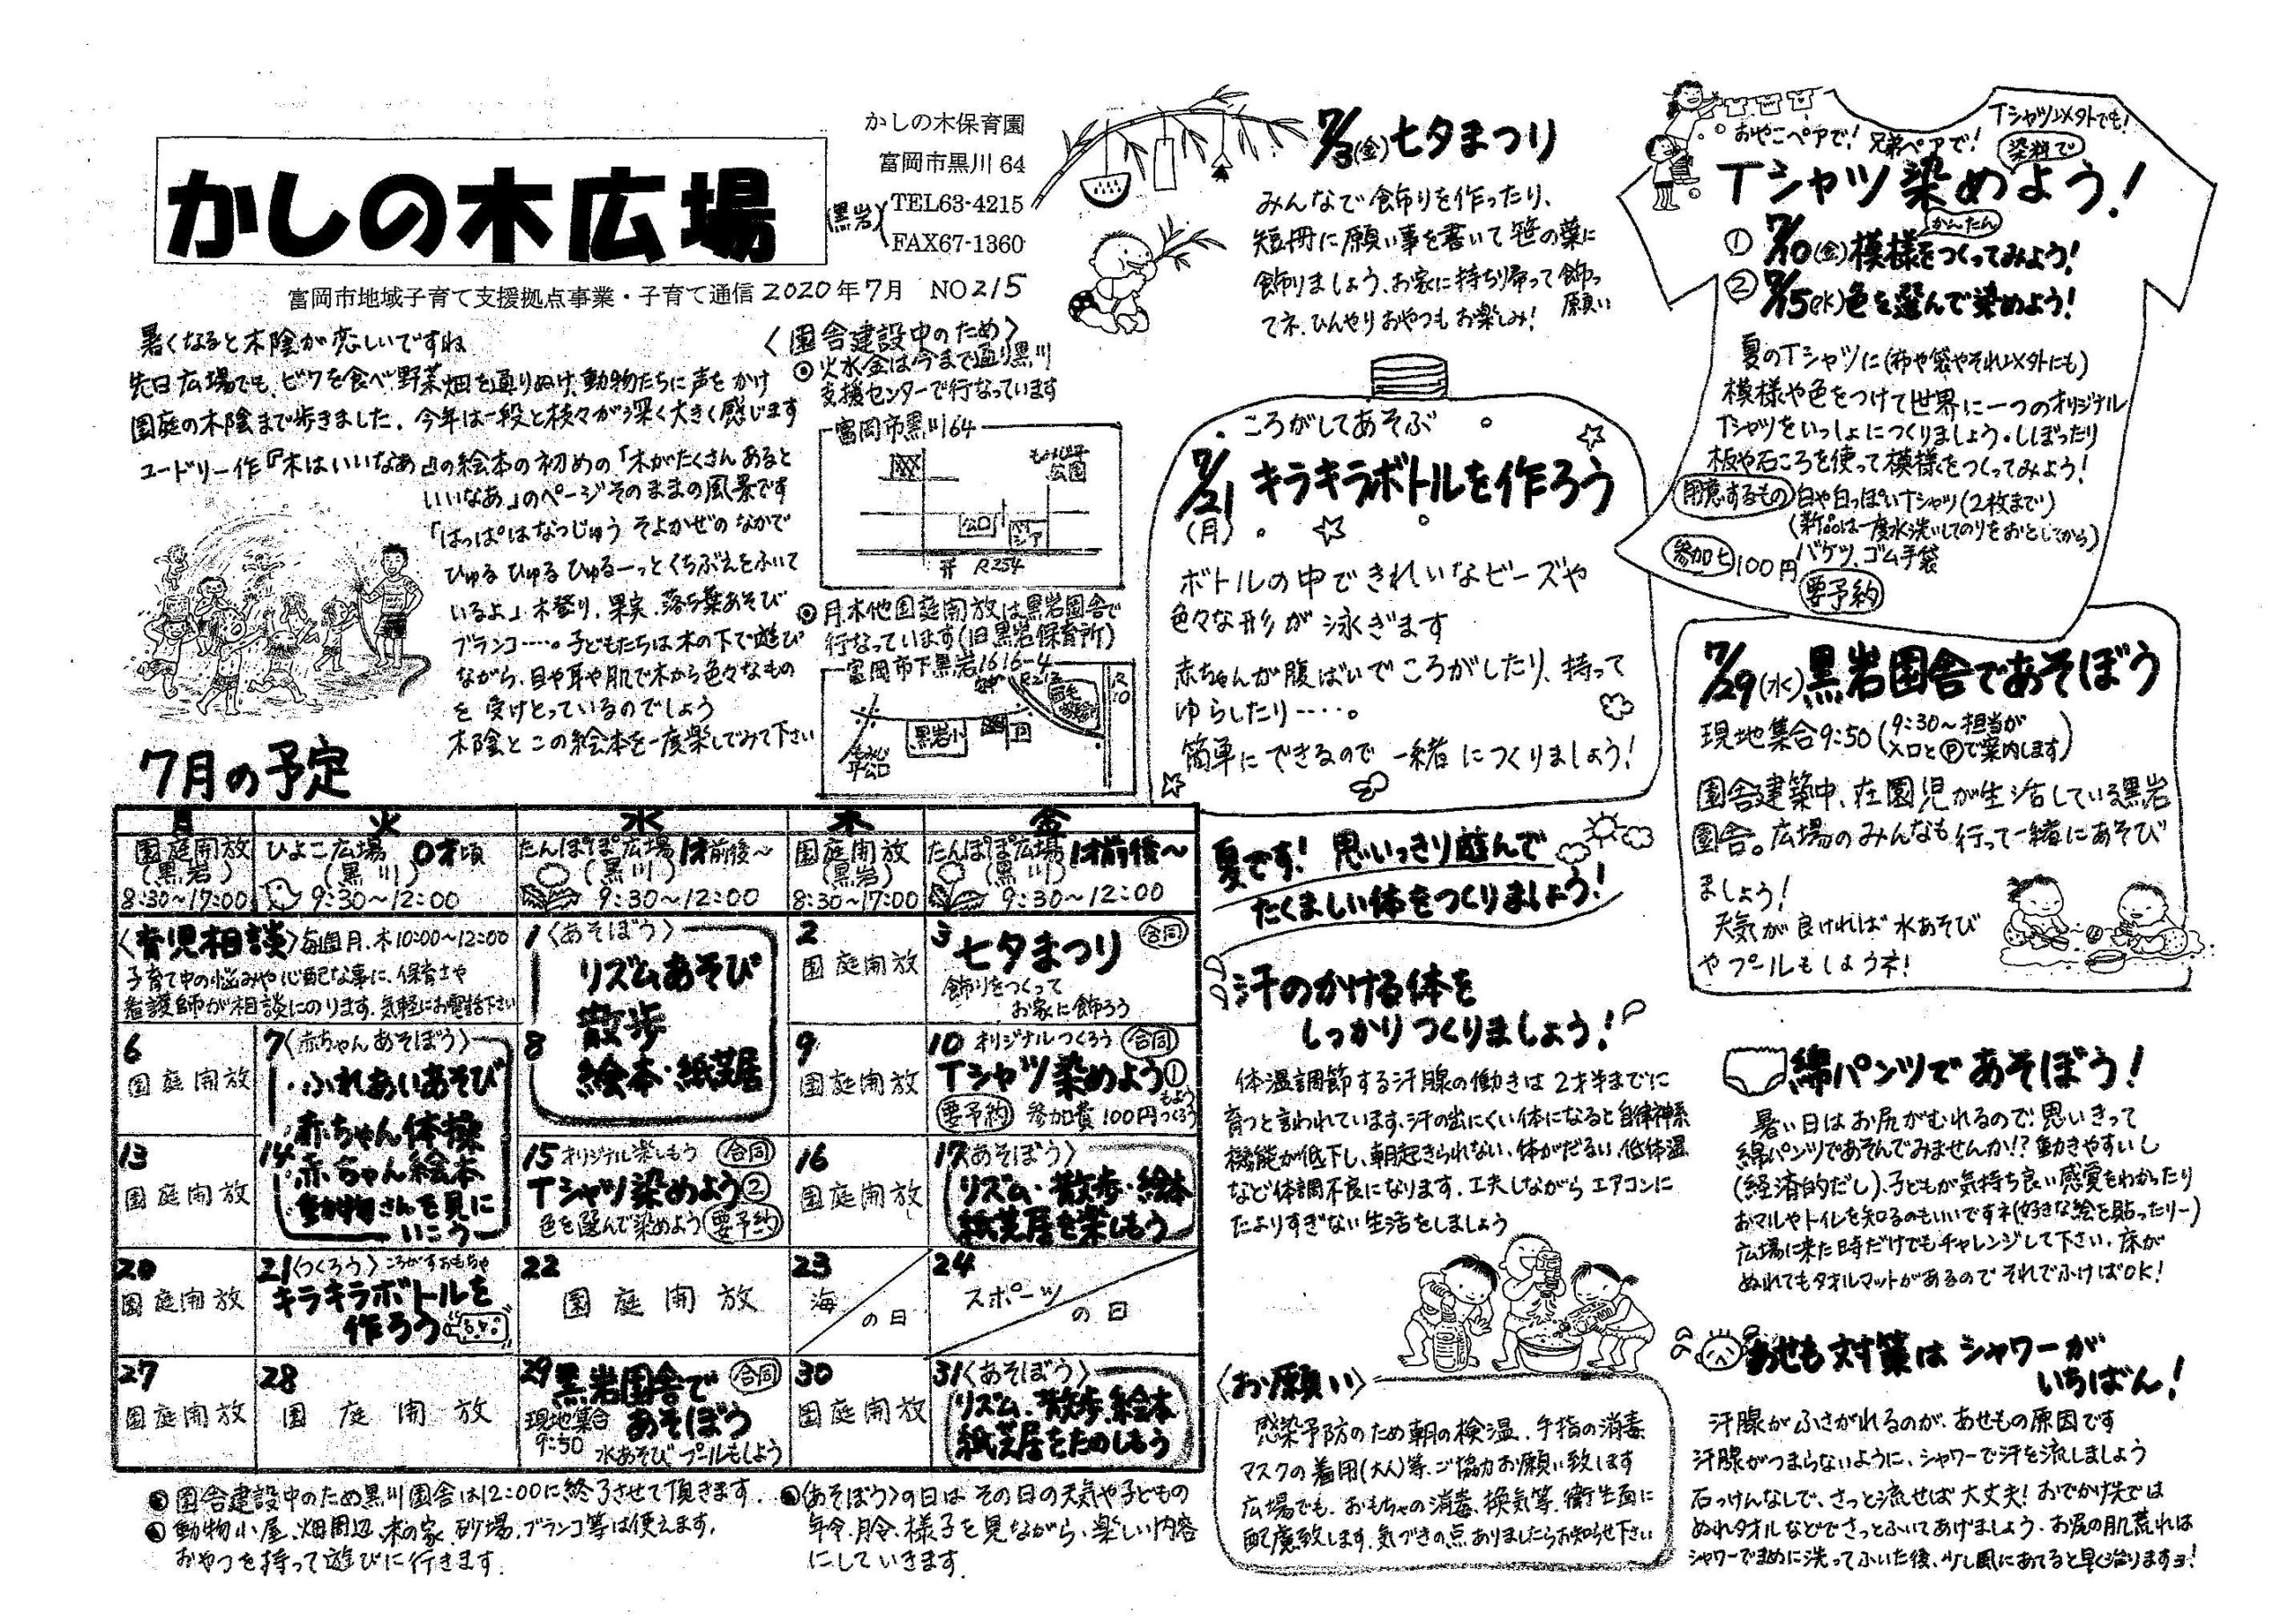 かしの木広場
かしの木保育園
富岡市黒川 64
(黒岩)
TEL63-4215
FAX67-1360
富岡市地域子育て支援拠点事業・子育て通信 2020年7月 NO215
暑くなると木陰が恋しいですね
先日広場でも、ビワを食べ野菜畑を通りぬけ、動物たちに声をかけ
園庭の木陰まで歩きました。今年は一段と枝々が深く大きく感じます
ユードリー作『木はいいなあ』の絵本の初めの「木がたくさんあると
いいなあ」のページそのままの風景です
「はっぱはなつじゅう そよかぜの なかで
ひゅる ひゅる ひゅるーっとくちぶえをふいて
いるよ」木登り、果実、落ち葉あそび
ブランコ……。子どもたちは木の下で遊び
ながら、目や耳や肌で木から色々なもの
を受けとっているのでしょう
木陰とこの絵本を一度楽しんでみて下さい
〈園舎建設中のため〉
◎火水金は今まで通り黒川
支援センターで行なっています
富岡市黒川64
もみじ平
公園
R254
◎月木他園庭開放は黒岩園舎で
行なっています(旧黒岩保育所)
富岡市下黒岩1616-4
黒岩小
7月の予定
月 火 水 木 金
園庭開放
(黒岩)
8:30~17:00
ひよこ広場 0才頃
(黒川)
9:30~12:00
たんぽぽ広場 1才前後~
(黒川)
9:30~12:00
園庭開放
(黒岩)
8:30~17:00
たんぽぽ広場 1才前後~
(黒川)
9:30~12:00
〈育児相談〉毎週月、木10:00~12:00
子育て中の悩みや心配な事に、保育士や
看護師が相談にのります。気軽にお電話下さい
1〈あそぼう〉
リズムあそび
散歩
絵本・紙芝居
2
園庭開放
3 七夕まつり 合同
飾りをつくって
お家に飾ろう
6
園庭開放
7〈赤ちゃんあそぼう〉
・ふれあいあそび
・赤ちゃん体操
・赤ちゃん絵本
・動物さんを見に
いこう
8
9
園庭開放
10 オリジナルつくろう 合同
Tシャツ染めよう①
もよう
つくろう
要予約 参加費100円
13
園庭開放
14
15 オリジナル楽しもう 合同
Tシャツ染めよう②
色を選んで染めよう 要予約
16
園庭開放
17〈あそぼう〉
リズム・散歩・絵本
紙芝居を楽しもう
20
園庭開放
21〈つくろう〉ころがすおもちゃ
キラキラボトルを
作ろう
22
園庭開放
23
海
の日
24
スポーツ
の日
27
園庭開放
28
園庭開放
29 黒岩園舎で 合同
現地集合 あそぼう
9:50 水あそび プールもしよう
30
園庭開放
31〈あそぼう〉
リズム、散歩、絵本
紙芝居をたのしもう
園舎建設中のため黒川園舎は12:00に終了させて頂きます。
動物小屋、畑周辺、木の家、砂場、ブランコ等は使えます。
おやつを持って遊びに行きます。
〈あそぼう〉の日は その日の天気や子どもの
年令、月令、様子を見ながら、楽しい内容
にしていきます。
7/3(金)七夕まつり
みんなで飾りを作ったり、
短冊に願い事を書いて笹の葉に
飾りましょう、お家に持ち帰って飾っ
てネ、ひんやりおやつもお楽しみ!
願い
ころがしてあそぶ
7/21(月) キラキラボトルを作ろう
ボトルの中できれいなビーズや
色々な形が泳ぎます
赤ちゃんが腹ばいでころがしたり、持って
ゆらしたり……。
簡単にできるので一緒につくりましょう!
おやこペアで! 兄弟ペアで! Tシャツ以外でも!
染料で
Tシャツ染めよう!
かんたん
① 7/10(金)模様をつくってみよう!
② 7/15(水)色を選んで染めよう!
夏のTシャツに(布や袋やそれ以外にも)
模様や色をつけて世界に一つのオリジナル
Tシャツをいっしょにつくりましょう。しぼったり
板や石ころを使って模様をつくってみよう!
用意するもの 白や白っぽいTシャツ(2枚まで)
(新品は一度水洗いしてのりをおとしてから)
バケツ、ゴム手袋
参加ヒ 100円
要予約
7/29(水)黒岩園舎であそぼう
現地集合9:50(9:30~担当が
入口とⓅで案内します)
園舎建築中、在園児が生活している黒岩
園舎。広場のみんなも行って一緒にあそび
ましょう!
天気が良ければ水あそび
やプールもしようネ!
夏です! 思いっきり遊んで
たくましい体をつくりましょう!
汗のかける体を
しっかりつくりましょう!
体温調節する汗腺の働きは2才半までに
育つと言われています。汗の出にくい体になると自律神系
機能が低下し、朝起きられない、体がだるい、低体温
など体調不良になります。工夫しながらエアコンに
たよりすぎない生活をしましょう
〈お願い〉
感染予防のため朝の検温、手指の消毒
マスクの着用(大人)等、ご協力お願い致します
広場でも、おもちゃの消毒、換気等、衛生面に
配慮致します。気づきの点ありましたらお知らせ下さい
綿パンツであそぼう!
暑い日はお尻がむれるので、思いきって
綿パンツであそんでみませんか!? 動きやすいし
(経済的だし)、子どもが気持ち良い感覚をわかったり
おマルやトイレを知るのもいいですネ(好きな絵を貼ったりー)
広場に来た時だけでもチャレンジして下さい。床が
ぬれてもタオルマットがあるのでそれでふけばOK!
あせも対策はシャワーが
いちばん!
汗腺がふさがれるのが、あせもの原因です
汗腺がつまらないように、シャワーで汗を流しましょう
石っけんなしで、さっと流せば大丈夫! おでかけ先では
ぬれタオルなどでさっとふいてあげましょう。お尻の肌荒れは
シャワーでまめに洗ってふいた後、少し風にあてると早く治りますヨ!